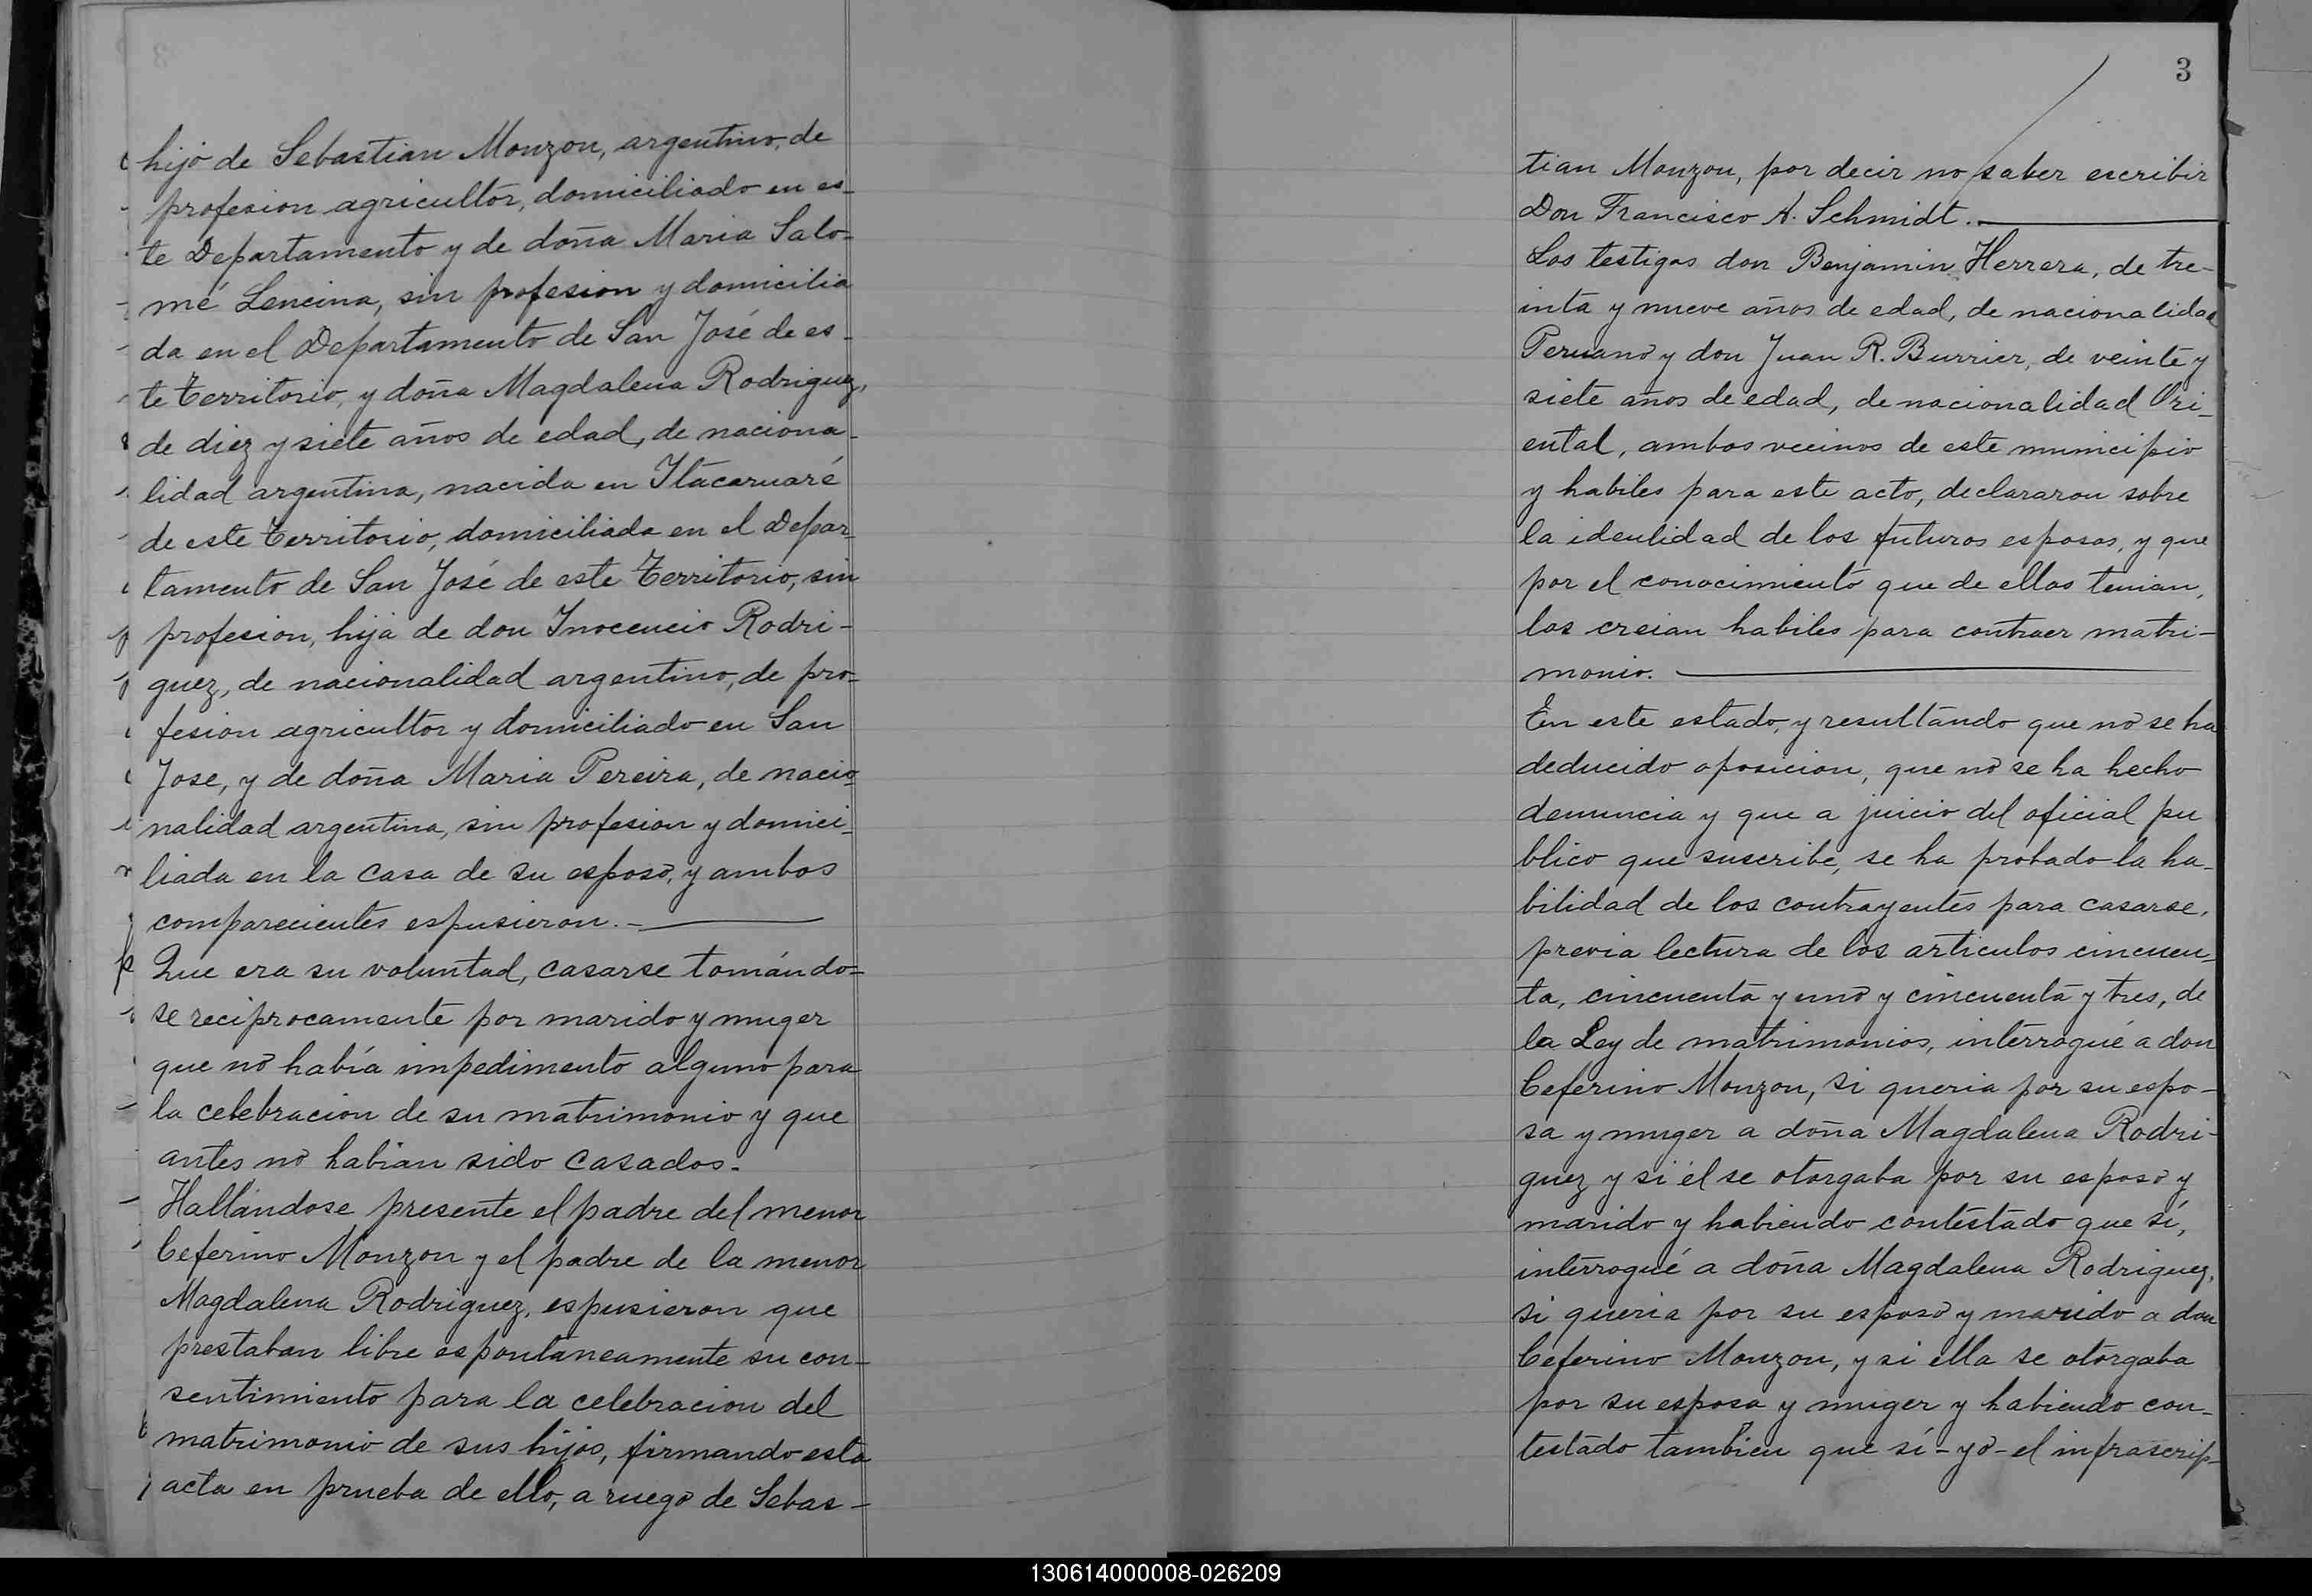 hijo de Sebastian Monzon, argentino, de
profesion agricultor, domiciliado en es-
te Departamento y de doña Maria Salo-
mé Lencina, sin profesion y domicilia
da en el Departamento de San José de es-
te territorio, y doña Magdalena Rodriguez,
de diez y siete años de edad, de naciona-
lidad argentina, nacida en Itacaruaré
de este territorio, domiciliada en el Depar-
tamento de San José de este territorio, sin
profesion, hija de don Inocencio Rodri-
guez, de nacionalidad argentino, de pro-
fesion agricultor y domiciliado en San
Jose, y de doña Maria Pereira, de nacio-
nalidad argentina, sin profesion y domici-
liada en la casa de su esposo, y ambos
comparecientes espusieron.-
Que era su voluntad, casarse tomándo-
se reciprocamente por marido y muger
que no había impedimento alguno para
la celebracion de su matrimonio y que
antes no habian sido casados.
Hallándose presente el padre del menor
Ceferino Monzon y el padre de la menor
Magdalena Rodriguez, espusieron que
prestaban libre espontaneamente su con-
sentimiento para la celebracion del
matrimonio de sus hijos, firmando esta
acta en prueba de ello, a ruego de Sebas-
3
tian Monzon, por decir no saber escribir
Don Francisco A. Schmidt.
Los testigos don Benjamin Herrera, de tre-
inta y nueve años de edad, de nacionalidad
Peruano y don Juan R. Burrier, de veinte y
siete años de edad, de nacionalidad Ori-
ental, ambos vecinos de este municipio
y habiles para este acto, declararon sobre
la identidad de los futuros esposos, y que
por el conocimiento que de ellos tenian,
los creian habiles para contraer matri-
monio.
En este estado, y resultando que no se ha
deducido oposicion, que no se ha hecho
denuncia y que a juicio del oficial pu
blico que suscribe, se ha probado la ha-
bilidad de los contrayentes para casarse,
previa lectura de los articulos cincuen-
ta, cincuenta y uno y cincuenta y tres, de
la Ley de matrimonios, interrogué a don
Ceferino Monzon, si queria por su espo-
sa y muger a doña Magdalena Rodri-
guez y si él se otorgaba por su esposo y
marido y habiendo contestado que sí,
interrogué a doña Magdalena Rodriguez,
si queria por su esposo y marido a don
Ceferino Monzon, y si ella se otorgaba
por su esposa y muger y habiendo con-
testado tambien que sí - yo - el infrascrip-
130614000008-026209